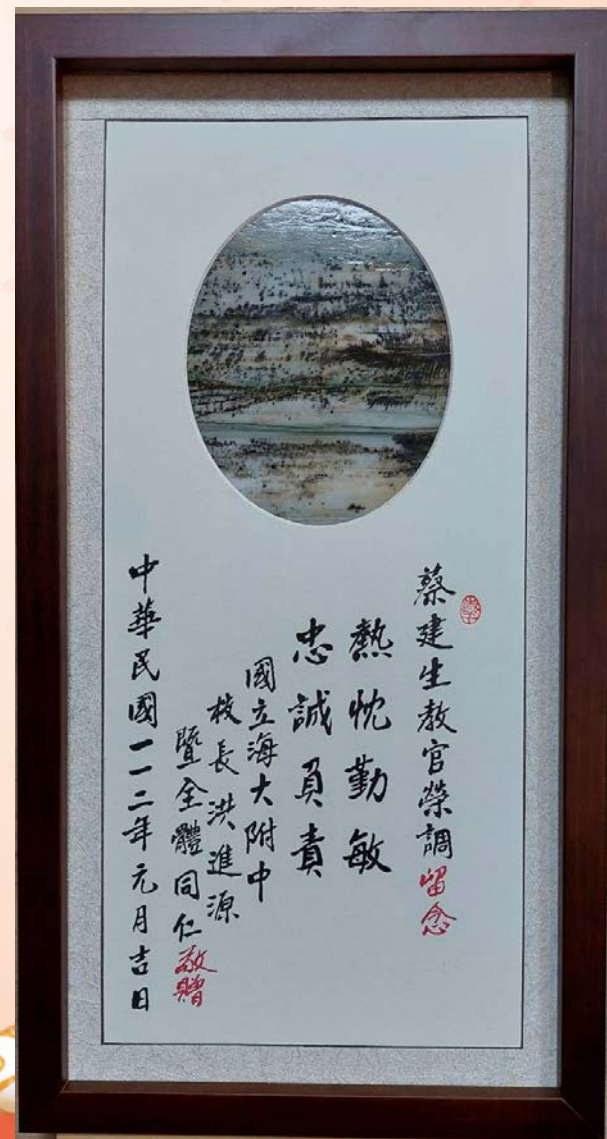 蔡建生教官榮調留念
熱忱勤敏
忠誠負責
國立海大附中
校長洪進源
暨全體同仁敬贈
中華民國一一二年元月吉日